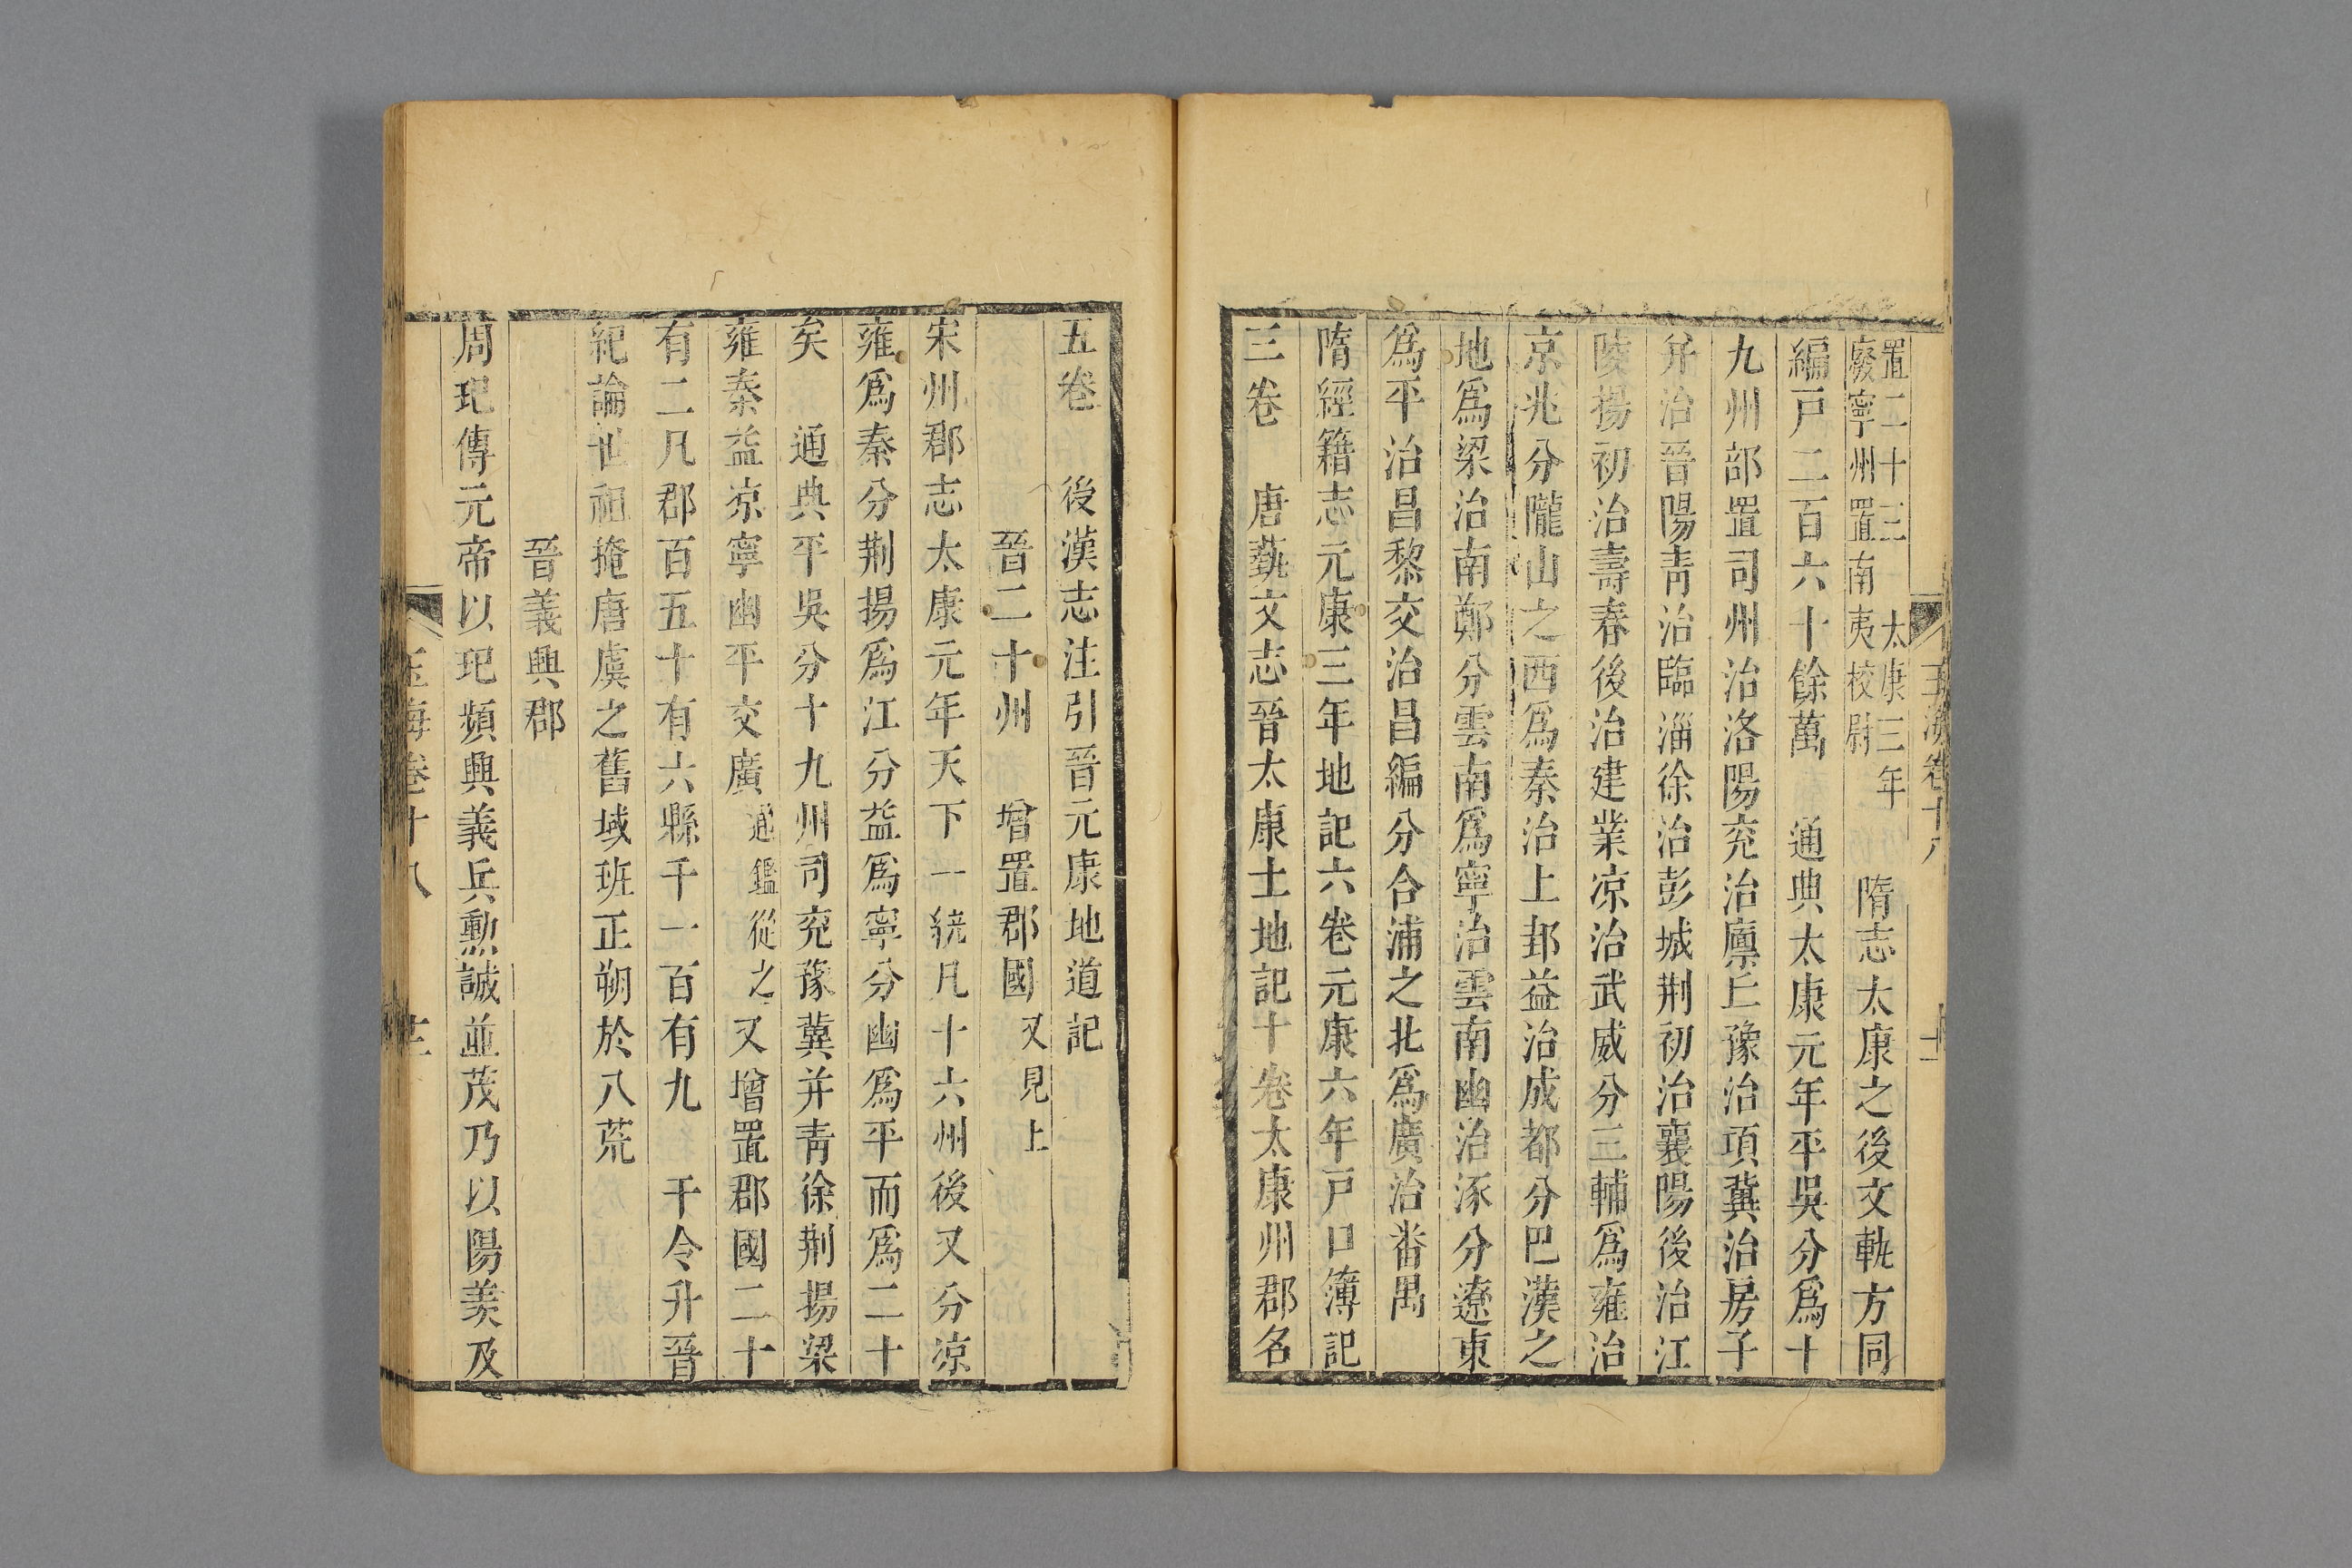 玉海卷十八
置二十三 太康三年
廢寧州置南夷校尉
隋志太康之後文軌方同
編戸二百六十餘萬 通典太康元年平吳分爲十
九州部置司州治洛陽兖治廩丘豫治項冀治房子
并治晉陽靑治臨淄徐治彭城荆初治襄陽後治江
陵揚初治壽春後治建業凉治武威分三輔爲雍治
京兆分隴山之西爲秦治上邽益治成都分巴漢之
地爲梁治南鄭分雲南爲寧治雲南幽治涿分遼東
爲平治昌黎交治昌編分合浦之北爲廣治畨禺
隋經籍志元康三年地記六卷元康六年戸口簿記
三卷 唐藝文志晉太康土地記十卷太康州郡名
五卷 後漢志注引晉元康地道記
晉二十州 增置郡國 又見上
宋州郡志太康元年天下一統凡十六州後又分凉
雍爲秦分荆揚爲江分益爲寧分幽爲平而爲二十
矣 通典平吳分十九州司兖豫冀并靑徐荆揚梁
雍秦益凉寧幽平交廣 通鑑從之 又增置郡國二十
有二凡郡百五十有六縣千一百有九 干令升晉
紀論世祖掩唐虞之舊域班正朔於八荒
晉義興郡
周玘傳元帝以玘頻興義兵勲誠並茂乃以陽羨及
玉海卷十八